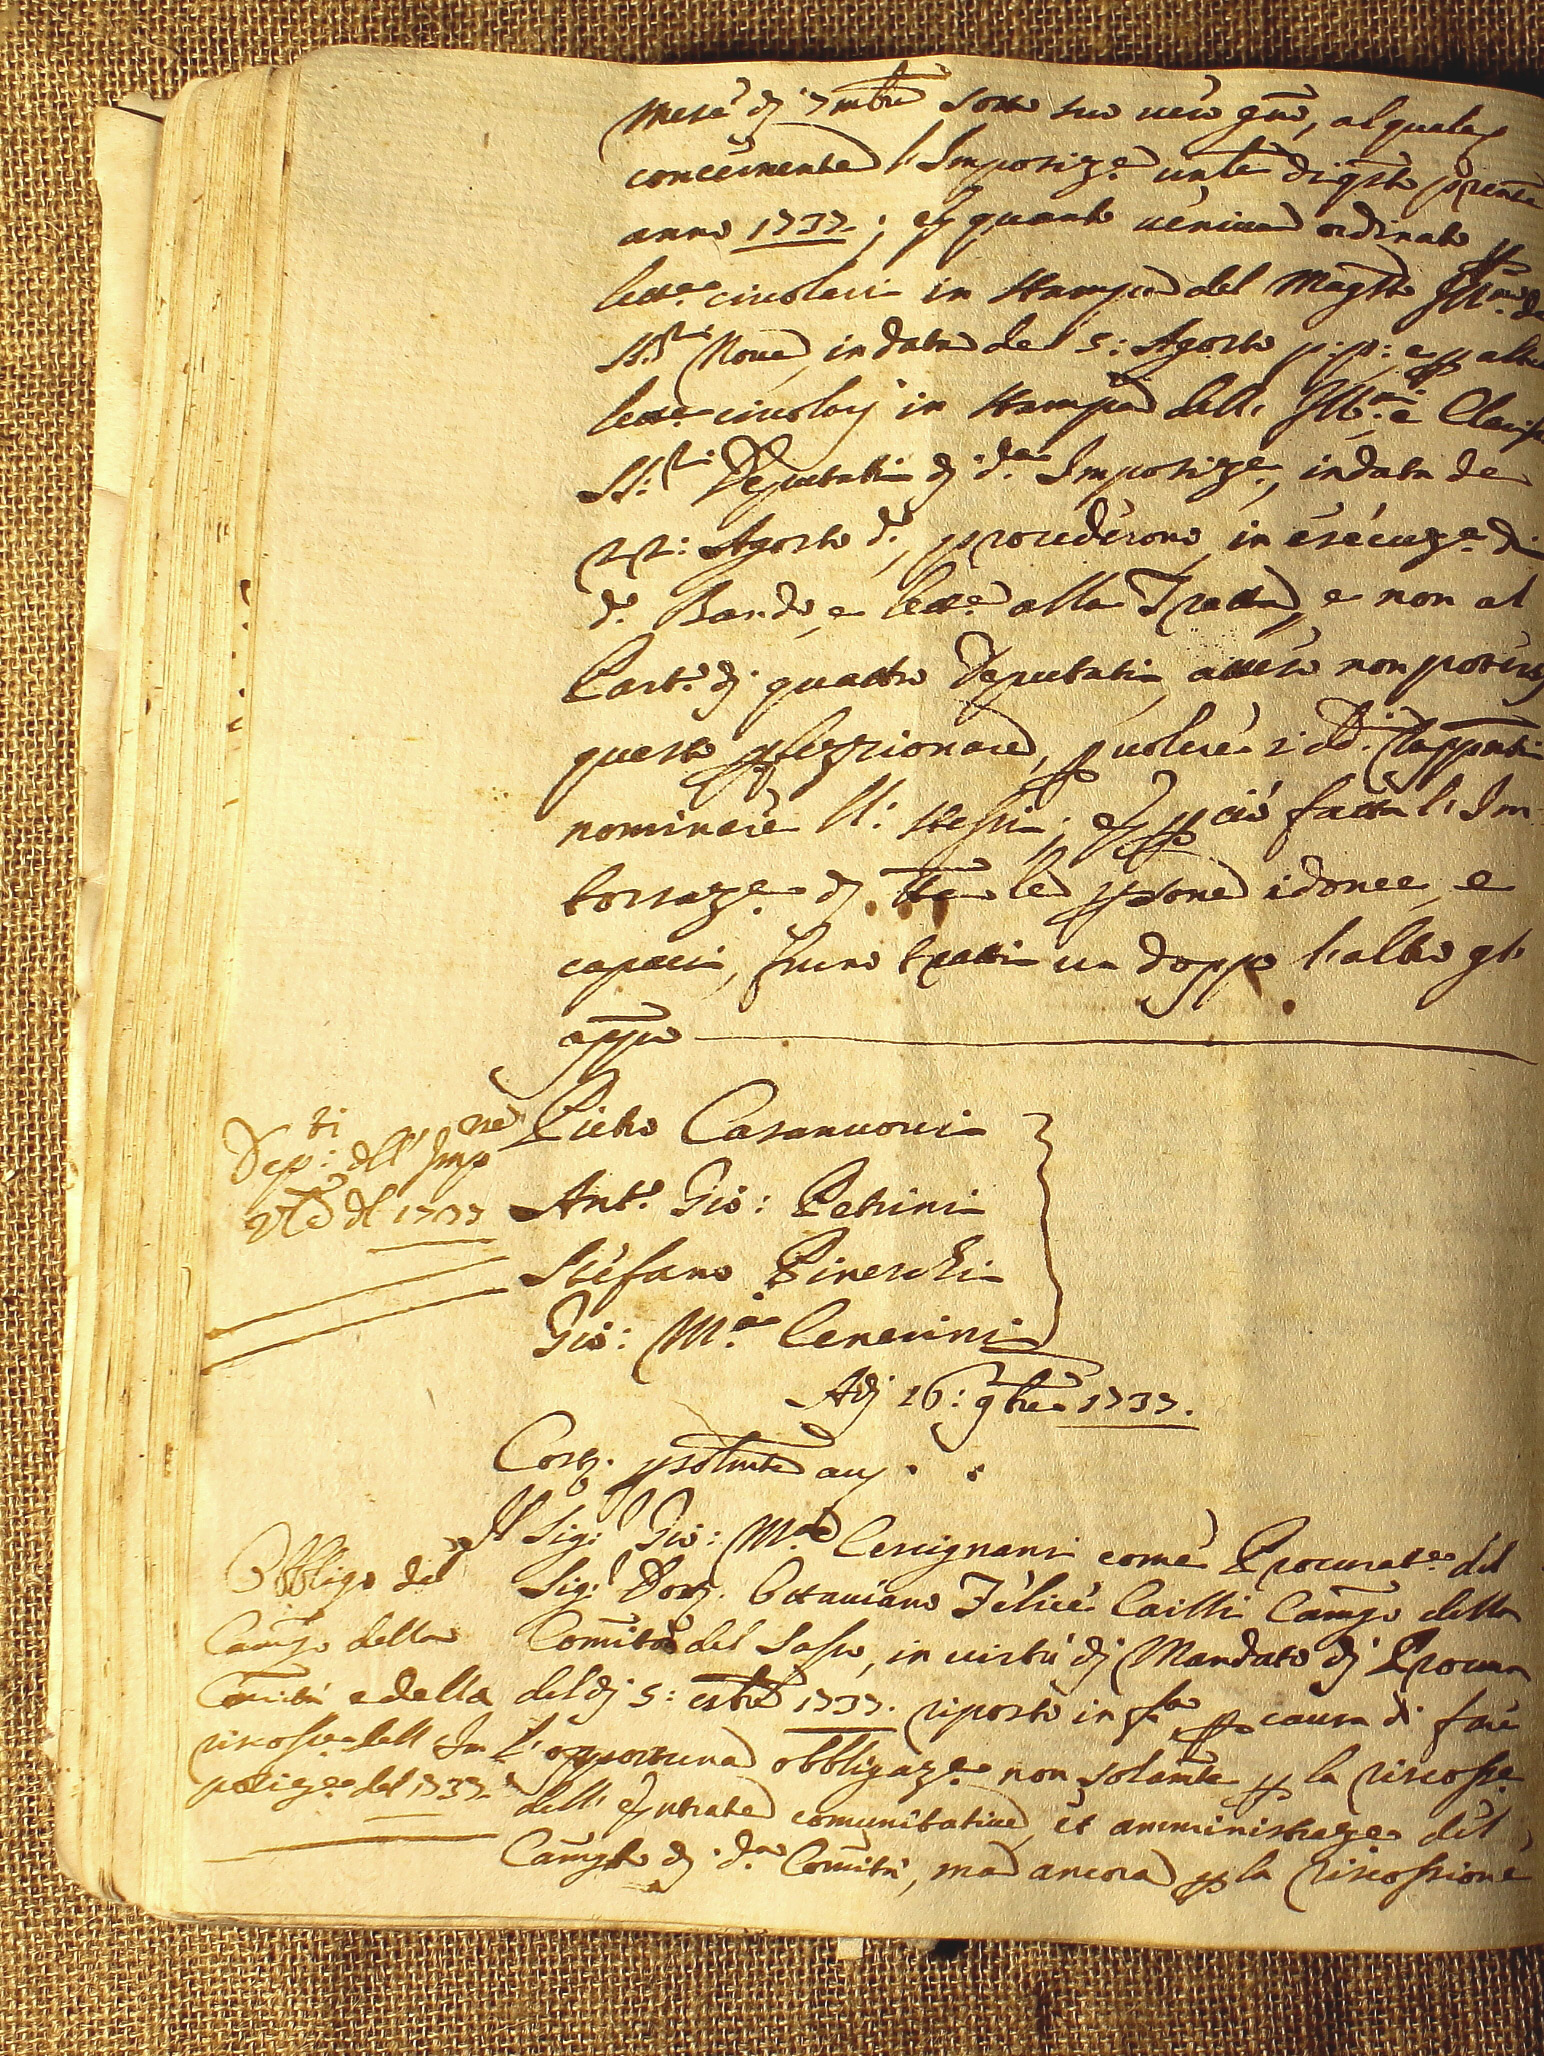 Mese di 7mbre sotto suo vero gno, al quale
concernente l'Imposize unle di qsto prense
anno 1737.; e quanto veniva ordinato p
lettre circolari in stampa del Magto Illmo de
SS.ri Nove, in data de 5: Agosto p:p: e p altre
lettre circolarj in stampa delli Ill.mi e Clariss
SS.ri Deputati di d.a Imposize, in data de
22: Agosto d.o, procederono in esecuze di
d.o Bando, e lette alla Tratta, e non al
Part.o di quattro Deputati, atteso non potersi
questo pfezzionare, p volere i dd.i Rapptanti
nominare li stessi; e p ciò fatta l'Im-
borsaze di tutte le psone idonee, e
capaci, furno tratti un doppo l'altro gl'
appo
Dep:ti dell'Impne
Vle del 1737
Pietro Casanuovi
Ant.o Gio: Petrini
Stefano Pineschi
Gio: M.a Cenerini
Adj 16: 9bre 1737.
Cost. psolmte avj
Obbligo del
Camgo della
Comità e della
riscosse dell Im
posize del 1737.
Il Sig.r Gio: M.a Cercignani come Procurat.re del
Sig.r Dott. Ottaviano Felice Cailli Camgo della
Comità del Sasso, in virtù dj Mandato dj Procura
del dj 5: estte 1737. riposto in fza p causa di fare
l'opportuna obbligaze non solamte p la riscosse
dell'Entrate comunitative, et amministraze del
Camgto dj d.a Comità, ma ancora p la riscossione